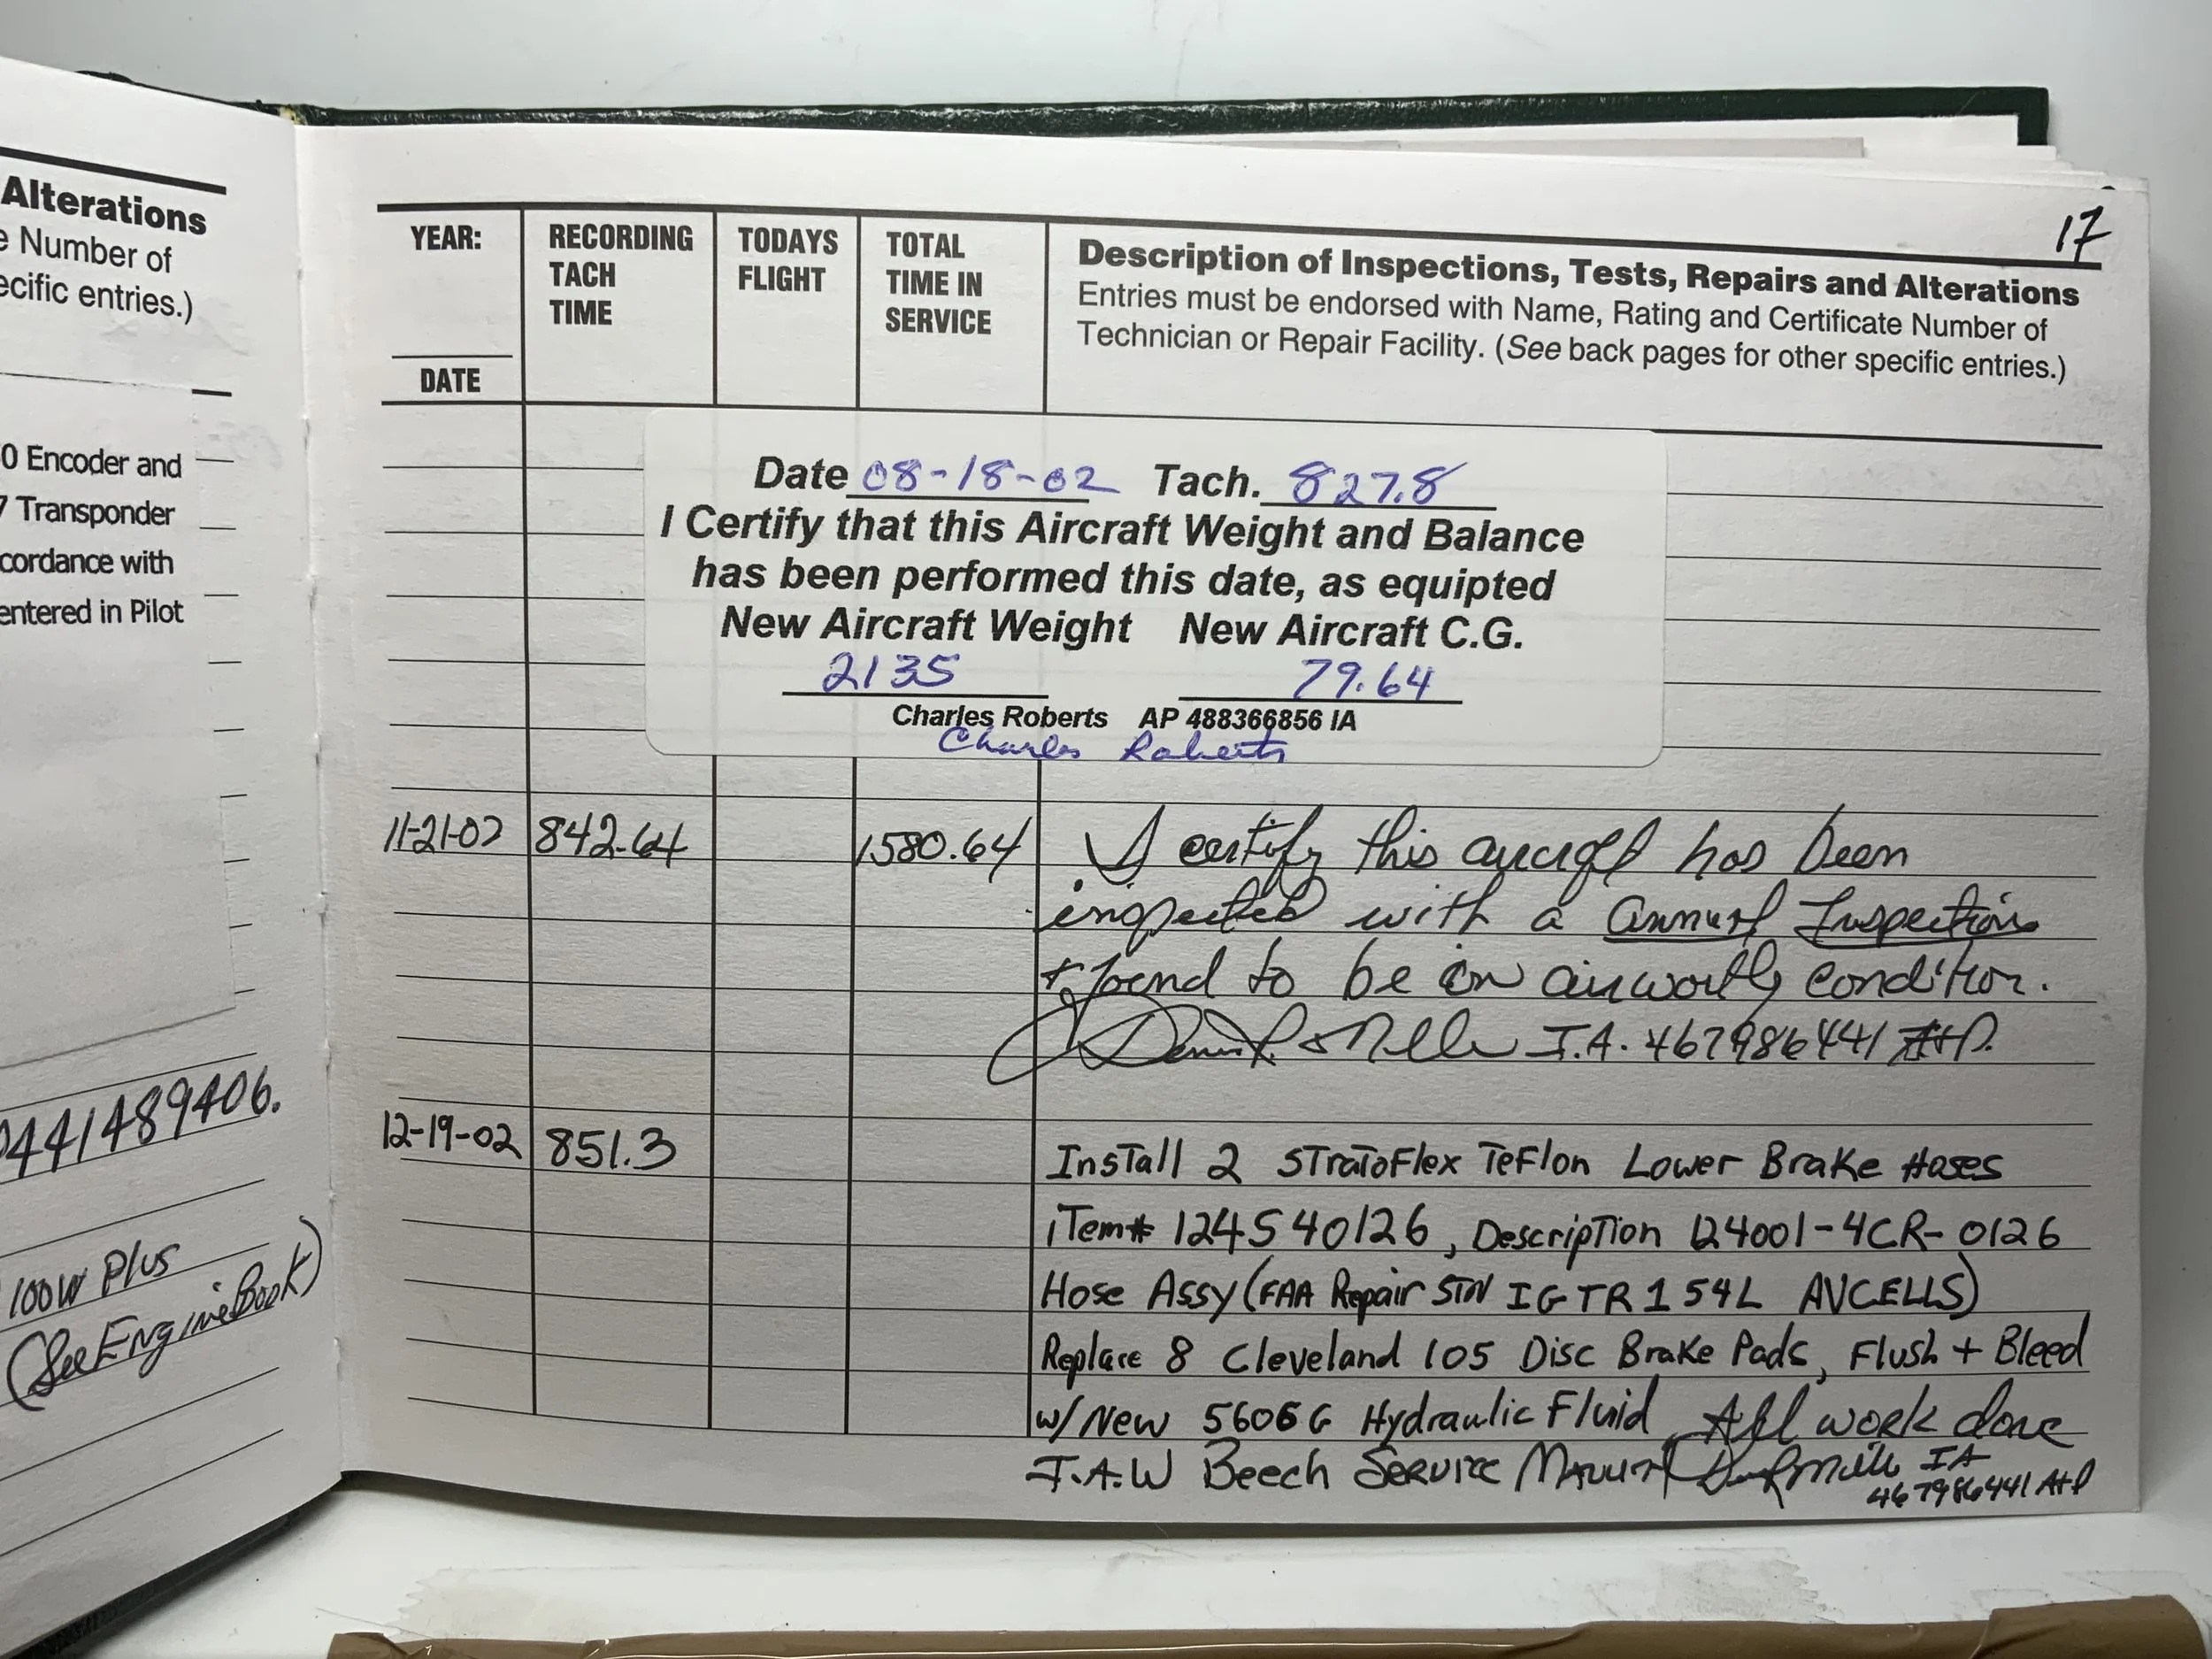 Alterations
e Number of
ecific entries.)
0 Encoder and
7 Transponder
cordance with
entered in Pilot
441489406.
100W Plus
(See Engine Book)
17
YEAR:
DATE
RECORDING
TACH
TIME
TODAYS
FLIGHT
TOTAL
TIME IN
SERVICE
Description of Inspections, Tests, Repairs and Alterations
Entries must be endorsed with Name, Rating and Certificate Number of
Technician or Repair Facility. (See back pages for other specific entries.)
Date 08-18-02 Tach. 827.8
I Certify that this Aircraft Weight and Balance
has been performed this date, as equipted
New Aircraft Weight New Aircraft C.G.
2135 79.64
Charles Roberts AP 488366856 IA
Charles Roberts
11-21-02 842.64 1580.64 I certify this aircraft has been
inspected with a annual Inspection
+ found to be in airworthy condition.
I.A. 467986441 A+P.
12-19-02 851.3 Install 2 StratoFlex Teflon Lower Brake Hoses
iTem# 124S40126, Description 124001-4CR-0126
Hose Assy (FAA Repair STN IGTR154L AVCELLS)
Replace 8 Cleveland 105 Disc Brake Pads, Flush + Bleed
w/ New 5606G Hydraulic Fluid All work done
I.A.W Beech Service Manual IA
467986441 A+P